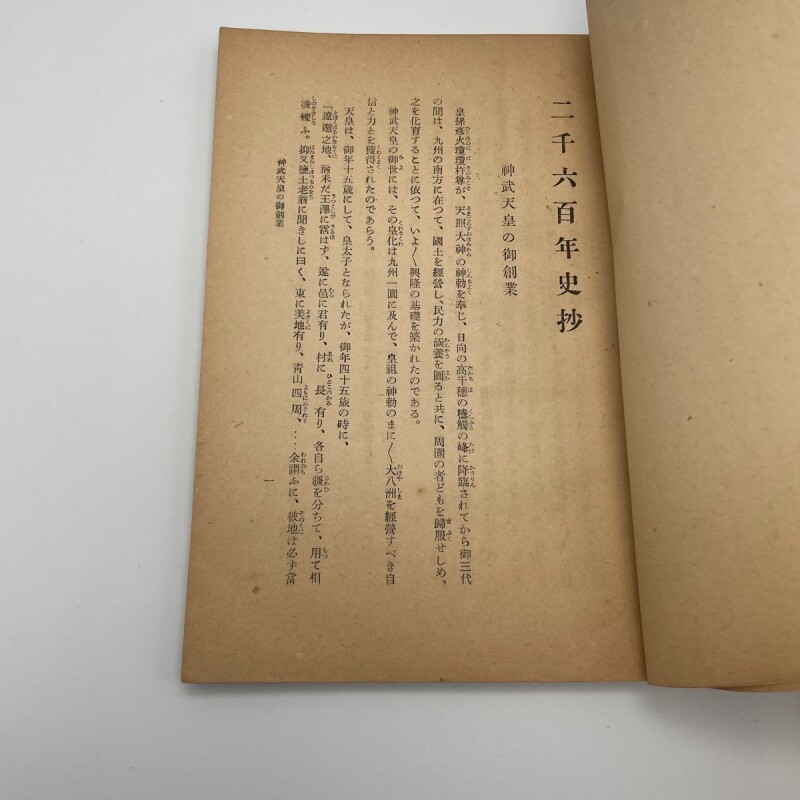 二千六百年史抄
神武天皇の御創業
皇孫彦火瓊瓊杵尊が、天照大神の神勅を奉じ、日向の高千穗の槵觸の峰に降臨されてから御三代
の間は、九州の南方に在つて、國土を經營し、民力の涵養を圖ると共に、周圍の者どもを歸服せしめ、
之を化育することに依つて、いよ〳〵興隆の基礎を築かれたのである。
神武天皇の御世には、その皇化は九州一圓に及んで、皇祖の神勅のまに〳〵大八洲を經營すべき自
信と力とを獲得されたのであらう。
天皇は、御年十五歳にして、皇太子となられたが、御年四十五歳の時に、
『遼邈之地、猶未だ王澤に霑はず、遂に邑に君有り、村に長有り、各自ら疆を分ちて、用て相
凌轢ふ。抑又鹽土老翁に聞きしに曰く、東に美地有り、靑山四周、…余謂ふに、彼地は必ず當
神武天皇の御創業
一